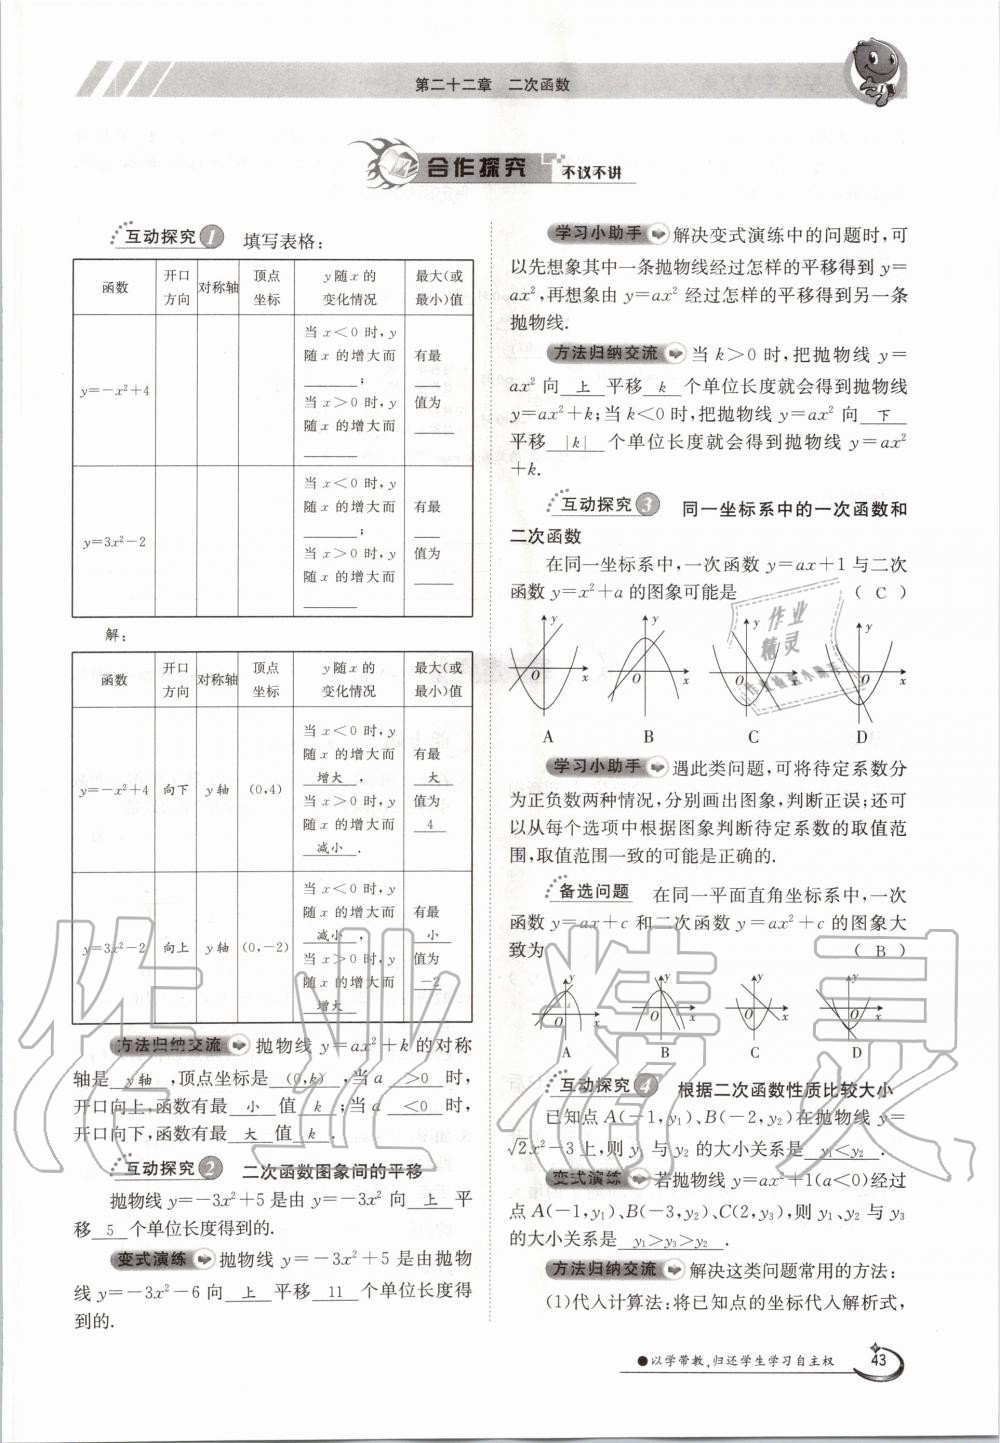 第二十二章 二次函数
合作探究 不议不讲
互动探究1 填写表格:
函数 开口方向 对称轴 顶点坐标 y随x的变化情况 最大(或最小)值
y=-x²+4
当x<0时,y
随x的增大而
______;
当x>0时,y
随x的增大而
______
有最
__
值为
____
y=3x²-2
当x<0时,y
随x的增大而
______;
当x>0时,y
随x的增大而
______
有最
__
值为
____
解:
函数 开口方向 对称轴 顶点坐标 y随x的变化情况 最大(或最小)值
y=-x²+4 向下 y轴 (0,4)
当x<0时,y
随x的增大而
增大,
当x>0时,y
随x的增大而
减小.
有最
大
值为
4
y=3x²-2 向上 y轴 (0,-2)
当x<0时,y
随x的增大而
减小,
当x>0时,y
随x的增大而
增大
有最
小
值为
-2
方法归纳交流 抛物线y=ax²+k的对称
轴是 y轴 ,顶点坐标是 (0,k) ,当a >0 时,
开口向上,函数有最 小 值 k ;当a <0 时,
开口向下,函数有最 大 值 k .
互动探究2 二次函数图象间的平移
抛物线y=-3x²+5是由y=-3x²向 上 平
移 5 个单位长度得到的.
变式演练 抛物线y=-3x²+5是由抛物
线y=-3x²-6向 上 平移 11 个单位长度得
到的.
学习小助手 解决变式演练中的问题时,可
以先想象其中一条抛物线经过怎样的平移得到y=
ax²,再想象由y=ax²经过怎样的平移得到另一条
抛物线.
方法归纳交流 当k>0时,把抛物线y=
ax²向 上 平移 k 个单位长度就会得到抛物线
y=ax²+k;当k<0时,把抛物线y=ax²向 下
平移 |k| 个单位长度就会得到抛物线y=ax²
+k.
互动探究3 同一坐标系中的一次函数和
二次函数
在同一坐标系中,一次函数y=ax+1与二次
函数y=x²+a的图象可能是 ( C )
y y y y
O x O x O x O x
A B C D
学习小助手 遇此类问题,可将待定系数分
为正负数两种情况,分别画出图象,判断正误;还可
以从每个选项中根据图象判断待定系数的取值范
围,取值范围一致的可能是正确的.
备选问题 在同一平面直角坐标系中,一次
函数y=ax+c和二次函数y=ax²+c的图象大
致为 ( B )
y y y y
O x O x O x O x
A B C D
互动探究4 根据二次函数性质比较大小
已知点A(-1,y₁)、B(-2,y₂)在抛物线y=
√2x²-3上,则y₁与y₂的大小关系是 y₁<y₂ .
变式演练 若抛物线y=ax²+1(a<0)经过
点A(-1,y₁)、B(-3,y₂)、C(2,y₃),则y₁、y₂与y₃
的大小关系是 y₁>y₃>y₂ .
方法归纳交流 解决这类问题常用的方法:
(1)代入计算法:将已知点的坐标代入解析式,
●以学带教,归还学生学习自主权 43
作业精灵
作业
精灵